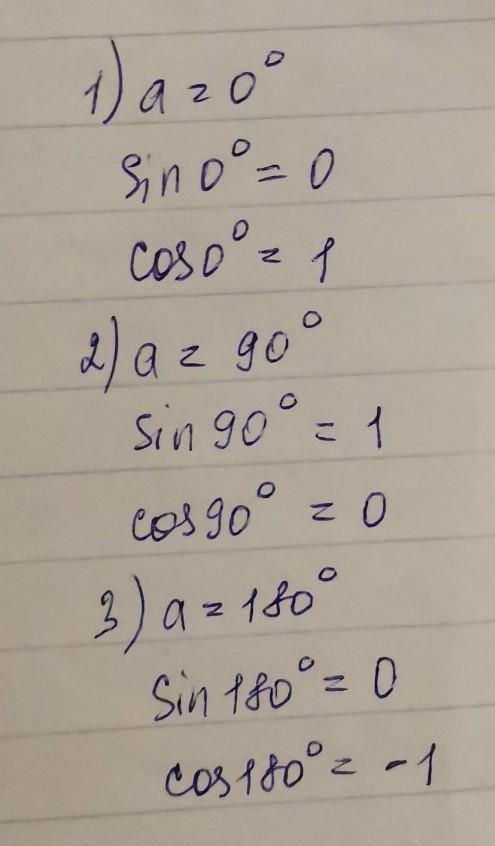 1) a = 0°
sin 0° = 0
cos 0° = 1
2) a = 90°
sin 90° = 1
cos 90° = 0
3) a = 180°
sin 180° = 0
cos 180° = -1